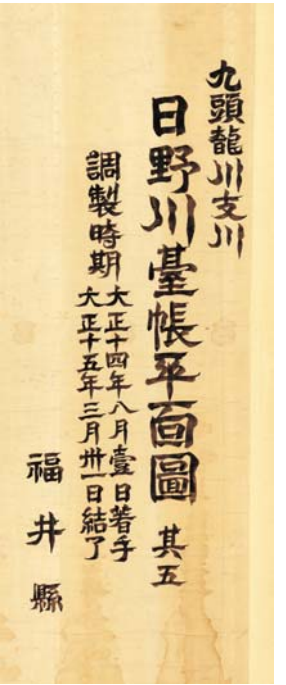 九頭龍川支川
日野川臺帳平面圖 其五
調製時期
大正十四年八月壹日著手
大正十五年三月卅一日結了
福井縣